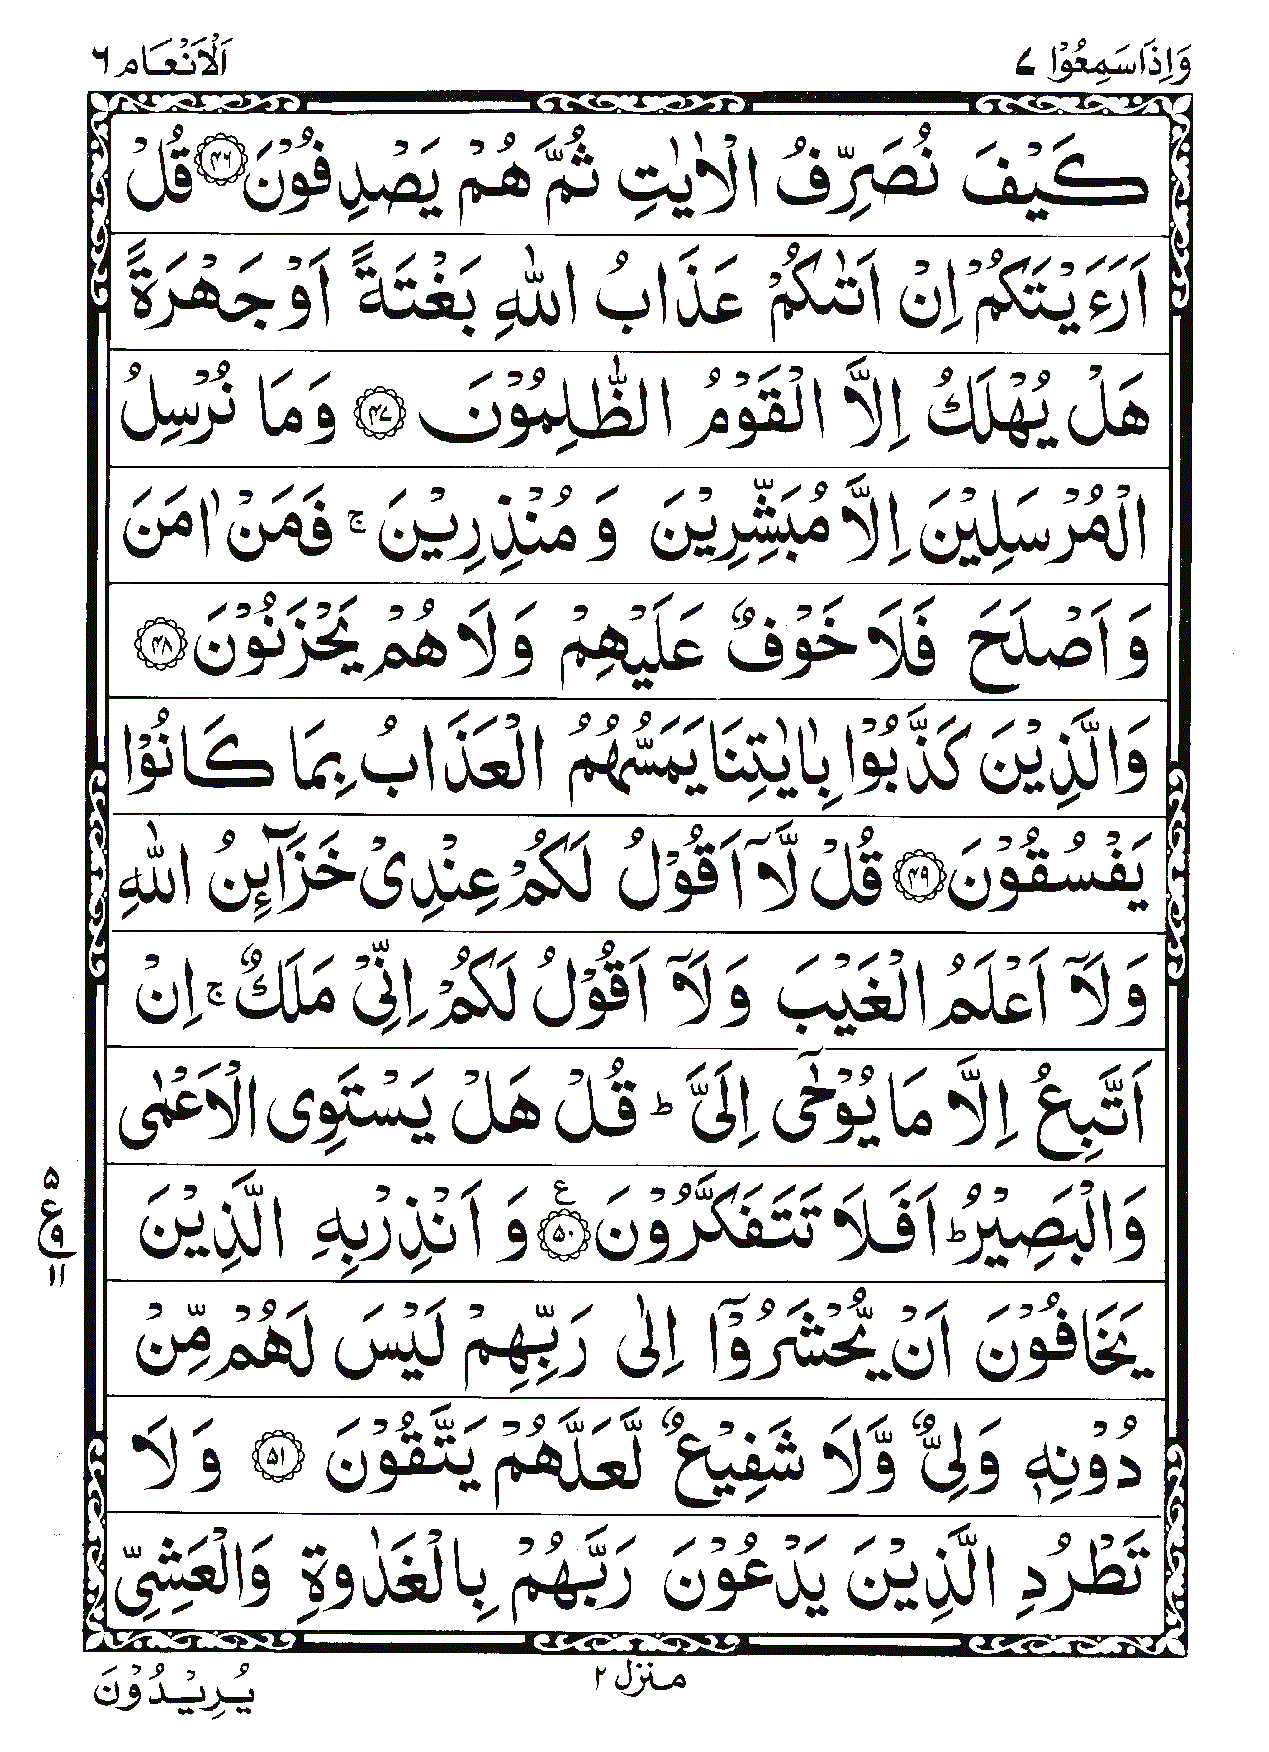 وَاِذَا سَمِعُوْا ٧
اَلْاَنْعَام ٦
كَيْفَ نُصَرِّفُ الْاٰيٰتِ ثُمَّ هُمْ يَصْدِفُوْنَ ﴿۴۶﴾ قُلْ
اَرَءَيْتَكُمْ اِنْ اَتٰىكُمْ عَذَابُ اللّٰهِ بَغْتَةً اَوْ جَهْرَةً
هَلْ يُهْلَكُ اِلَّا الْقَوْمُ الظّٰلِمُوْنَ ﴿۴۷﴾ وَمَا نُرْسِلُ
الْمُرْسَلِيْنَ اِلَّا مُبَشِّرِيْنَ وَ مُنْذِرِيْنَ ۚ فَمَنْ اٰمَنَ
وَ اَصْلَحَ فَلَا خَوْفٌ عَلَيْهِمْ وَلَا هُمْ يَحْزَنُوْنَ ﴿۴۸﴾
وَالَّذِيْنَ كَذَّبُوْا بِاٰيٰتِنَا يَمَسُّهُمُ الْعَذَابُ بِمَا كَانُوْا
يَفْسُقُوْنَ ﴿۴۹﴾ قُلْ لَّآ اَقُوْلُ لَكُمْ عِنْدِىْ خَزَآئِنُ اللّٰهِ
وَلَآ اَعْلَمُ الْغَيْبَ وَلَآ اَقُوْلُ لَكُمْ اِنِّىْ مَلَكٌ ۚ اِنْ
اَتَّبِعُ اِلَّا مَا يُوْحٰٓى اِلَىَّ ؕ قُلْ هَلْ يَسْتَوِى الْاَعْمٰى
وَالْبَصِيْرُ ؕ اَفَلَا تَتَفَكَّرُوْنَ ﴿۵۰﴾ ع وَ اَنْذِرْ بِهِ الَّذِيْنَ
۵
ع
۹
۱۱
يَخَافُوْنَ اَنْ يُّحْشَرُوْٓا اِلٰى رَبِّهِمْ لَيْسَ لَهُمْ مِّنْ
دُوْنِهٖ وَلِىٌّ وَّلَا شَفِيْعٌ لَّعَلَّهُمْ يَتَّقُوْنَ ﴿۵۱﴾ وَلَا
تَطْرُدِ الَّذِيْنَ يَدْعُوْنَ رَبَّهُمْ بِالْغَدٰوةِ وَالْعَشِىِّ
منزل ۲
يُرِيْدُوْنَ